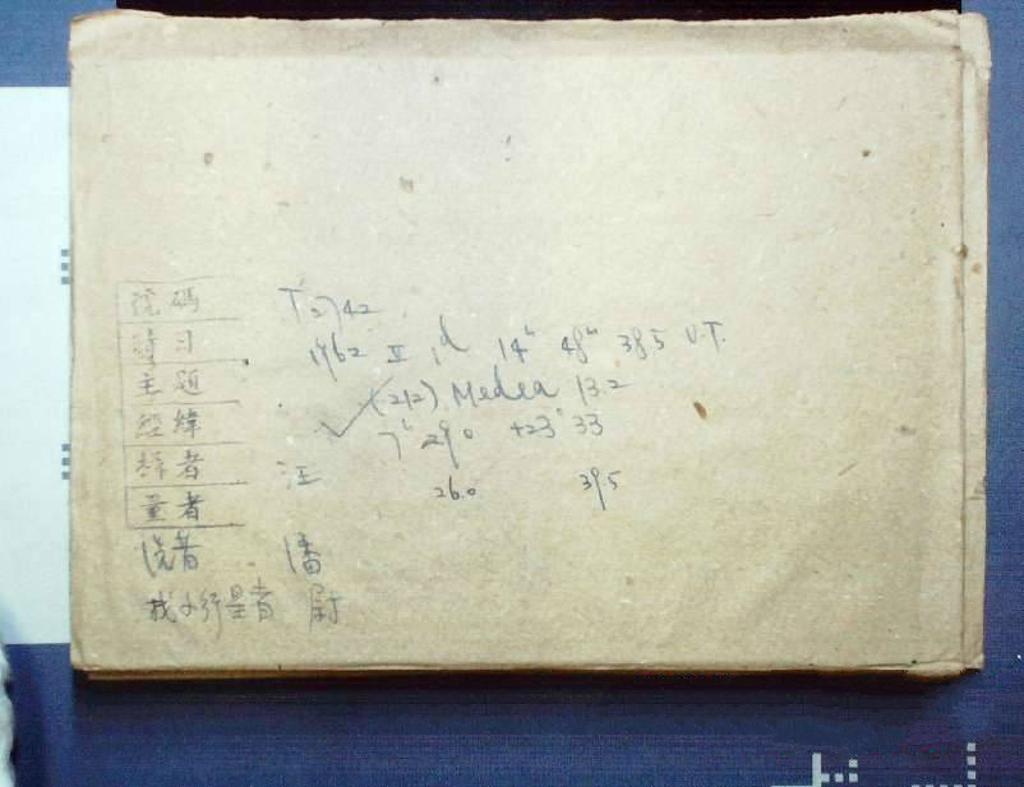 號碼 T2742
時日 1962 II 1d 14h 48m 38.5 U.T.
主題 (212) Medea 13.2
經緯 7h 29.0 +23° 33
者 汪 26.0 39.5
量者
者 潘
找小行星者 尉